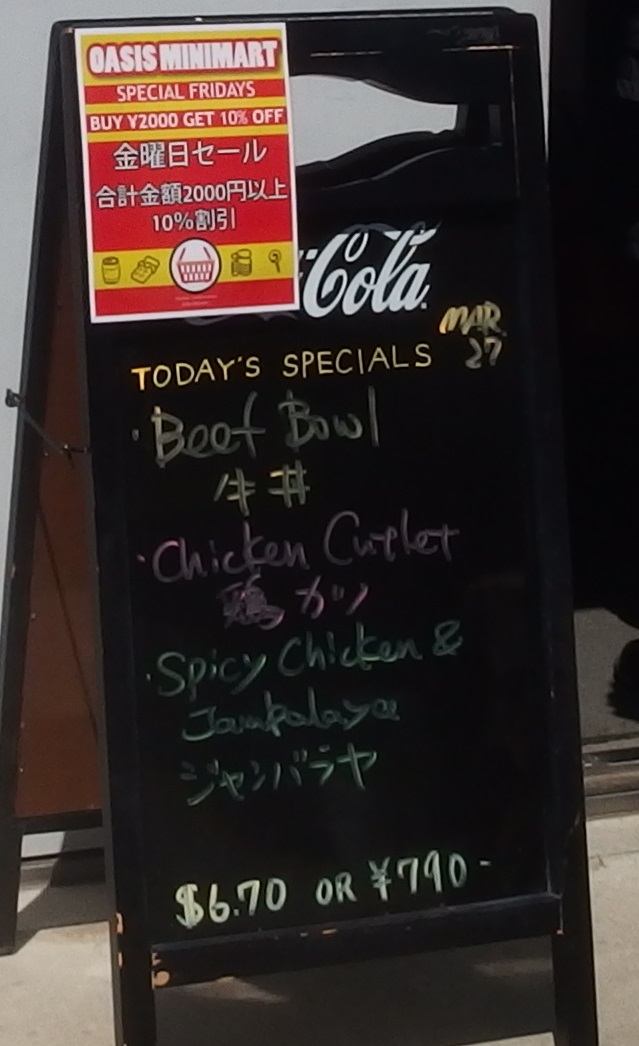 OASIS MINIMART
SPECIAL FRIDAYS
BUY Y2000 GET 10% OFF
金曜日セール
合計金額2000円以上
10%割引
Cola
MAR.
27
TODAY'S SPECIALS
・Beef Bowl
牛丼
・Chicken Cutlet
鶏カツ
・Spicy Chicken &
Jambalaya
ジャンバラヤ
$6.70 OR ¥790-